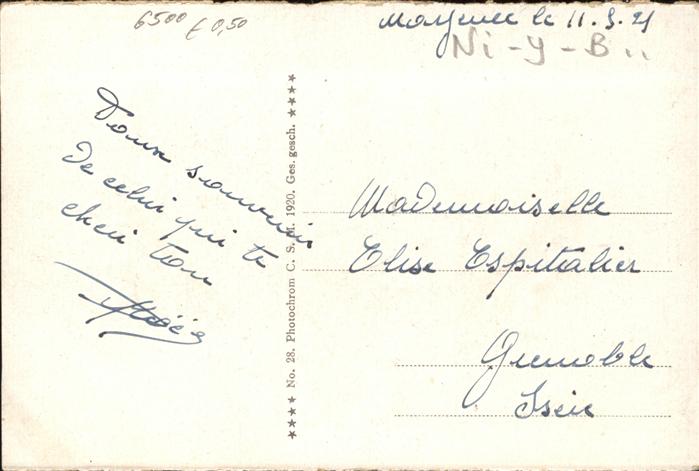 6500 £ 0,50
Mayence le 11.3.21
Ni-y-B..
Doux souvenir
De celui qui te
cheri ton
★★★★ No. 28. Photochrom C. S. M. 1920. Ges. gesch. ★★★★
Mademoiselle
Elise Espitalier
Grenoble
Isère